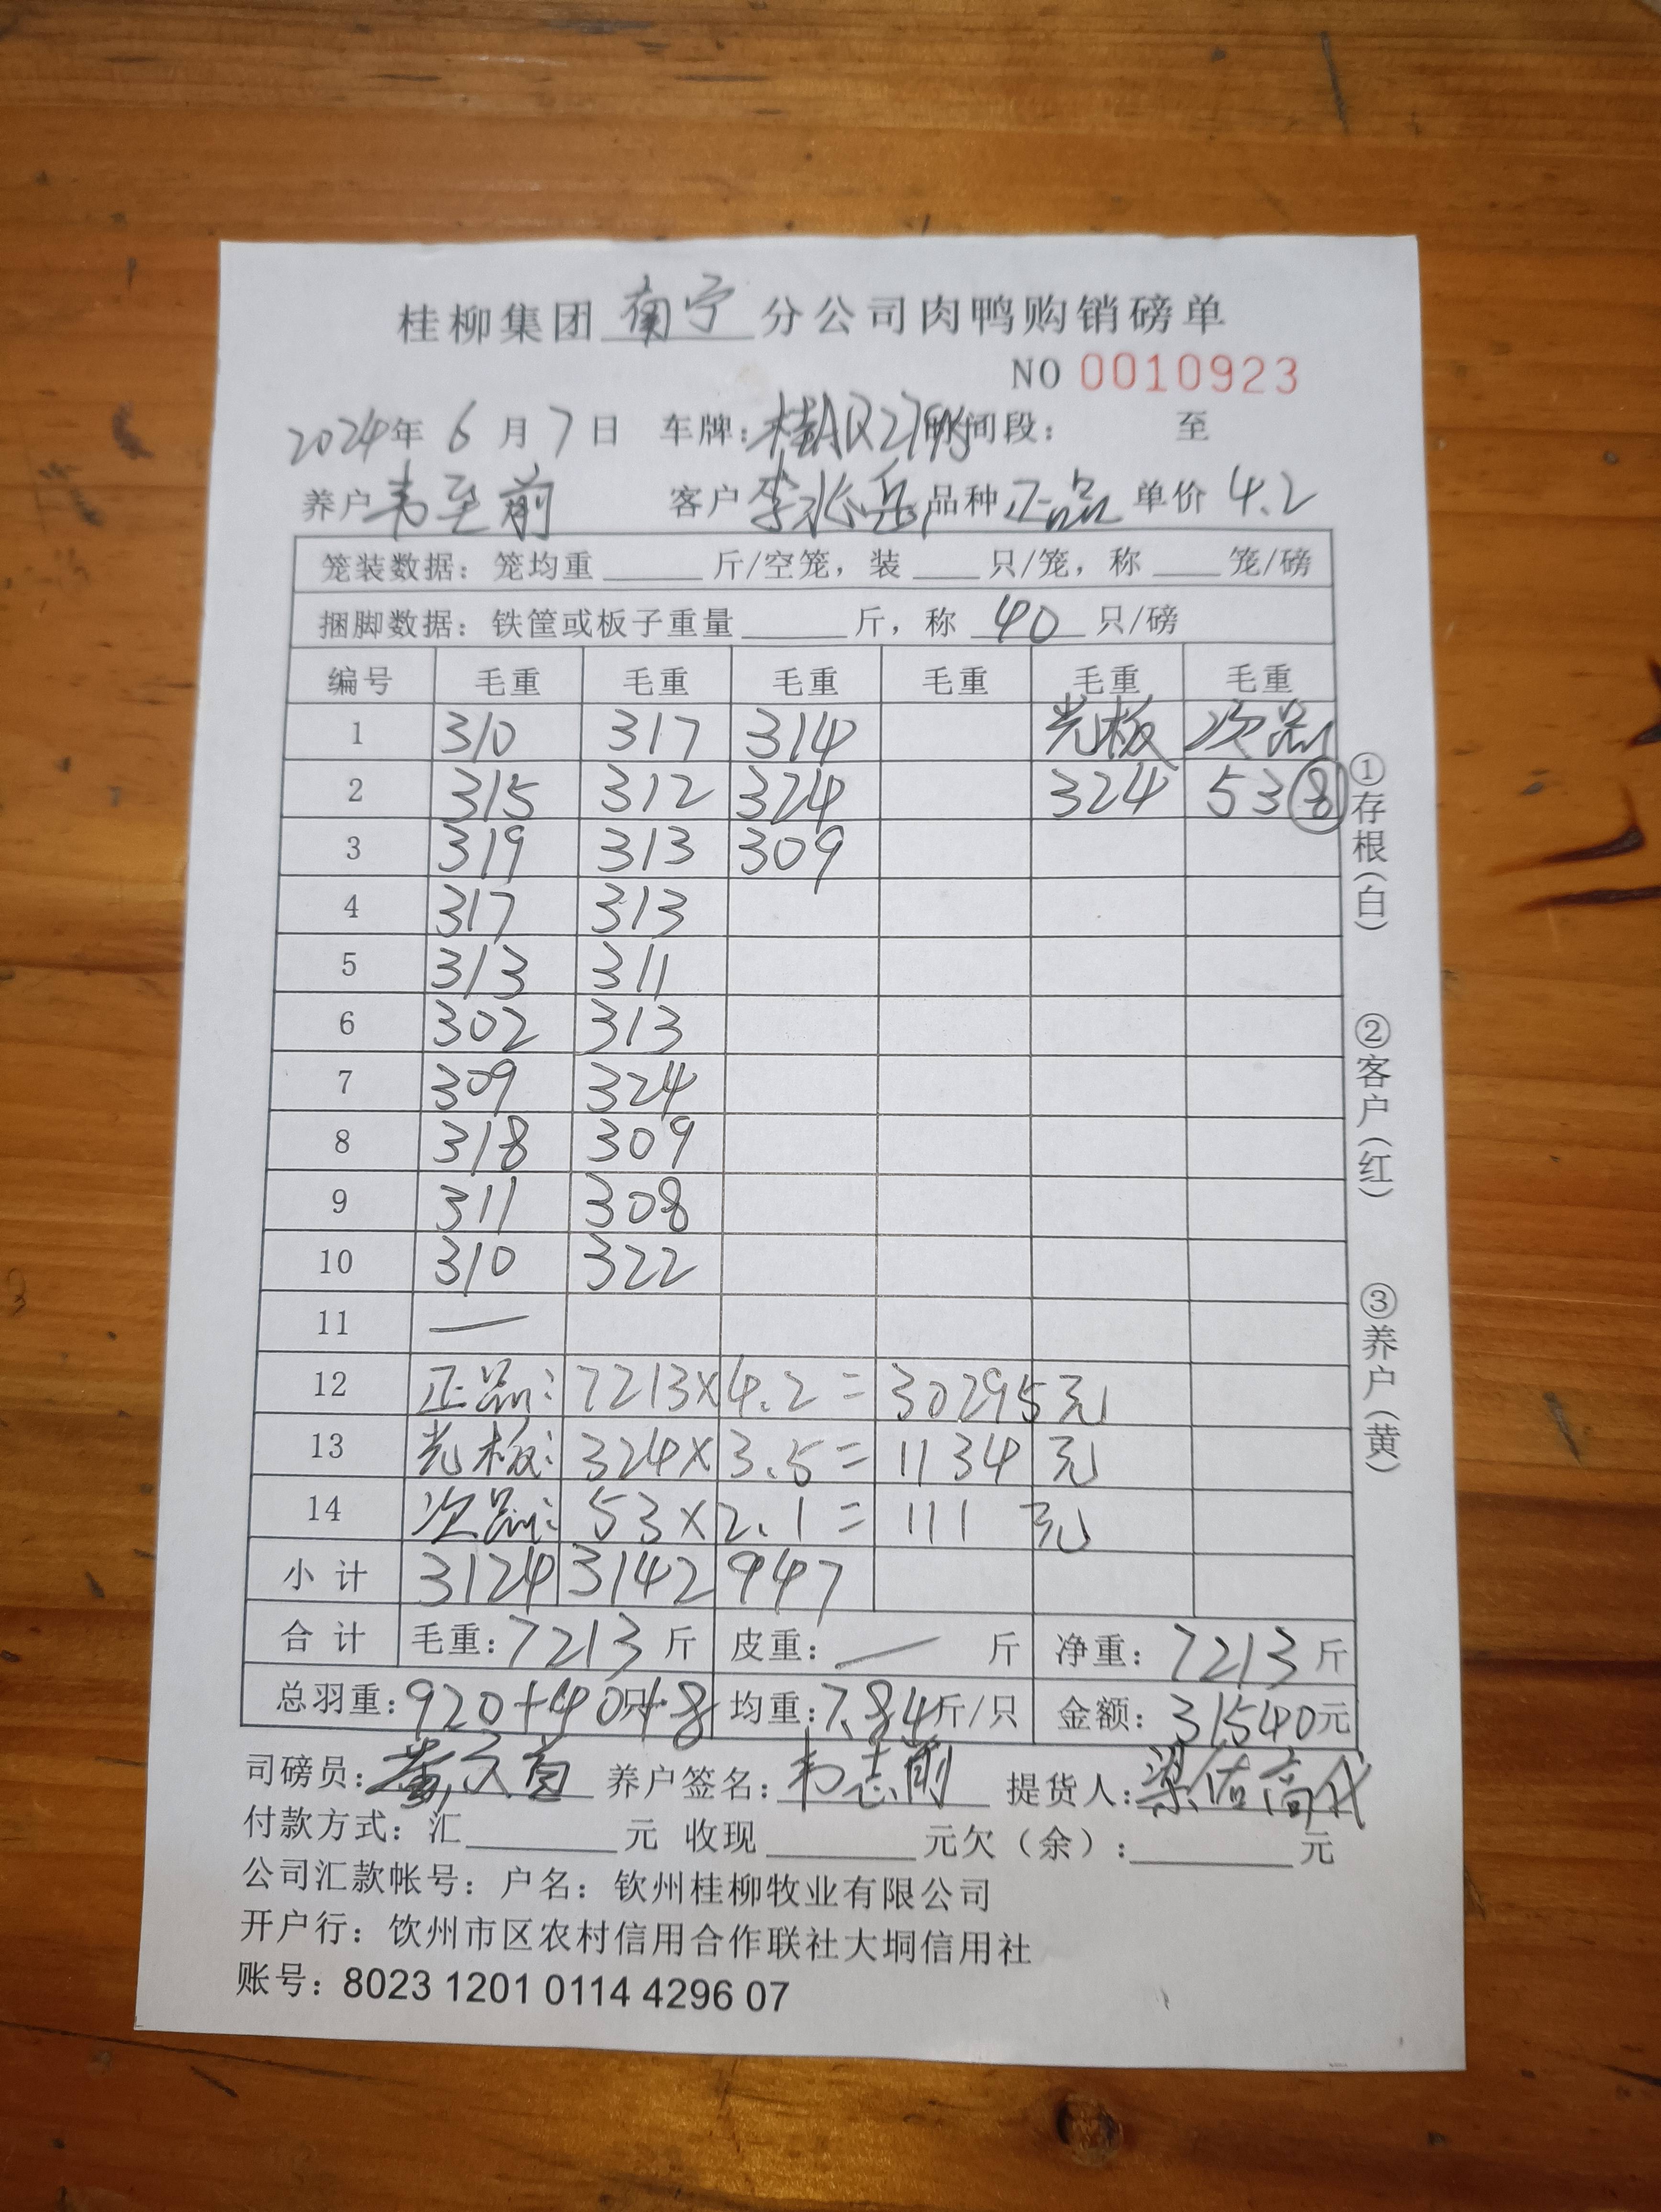 桂柳集团 南宁 分公司肉鸭购销磅单
NO 0010923
2024年 6 月 7 日 车牌: 时间段: 至
养户 韦至前 客户 李 品种 正品 单价 4.2
笼装数据: 笼均重 斤/空笼, 装 只/笼, 称 笼/磅
捆脚数据: 铁筐或板子重量 斤, 称 40 只/磅
编号 毛重 毛重 毛重 毛重 毛重 毛重
1 310 317 314 光板 次品
2 315 312 324 324 53⑧
3 319 313 309
4 317 313
5 313 311
6 302 313
7 309 324
8 318 309
9 311 308
10 310 322
11 —
12 正品: 7213×4.2= 30295元
13 光板: 324×3.5= 1134 元
14 次品: 53×2.1= 111 元
小计 3124 3142 947
合计 毛重: 7213 斤 皮重: — 斤 净重: 7213 斤
总羽重: 920+40只+8 均重: 7.84斤/只 金额: 31540元
司磅员: 黄 养户签名: 韦志前 提货人: 梁佑高代
付款方式: 汇 元 收现 元欠(余): 元
公司汇款帐号: 户名: 钦州桂柳牧业有限公司
开户行: 饮州市区农村信用合作联社大垌信用社
账号: 8023 1201 0114 4296 07
①存根(白)
②客户(红)
③养户(黄)